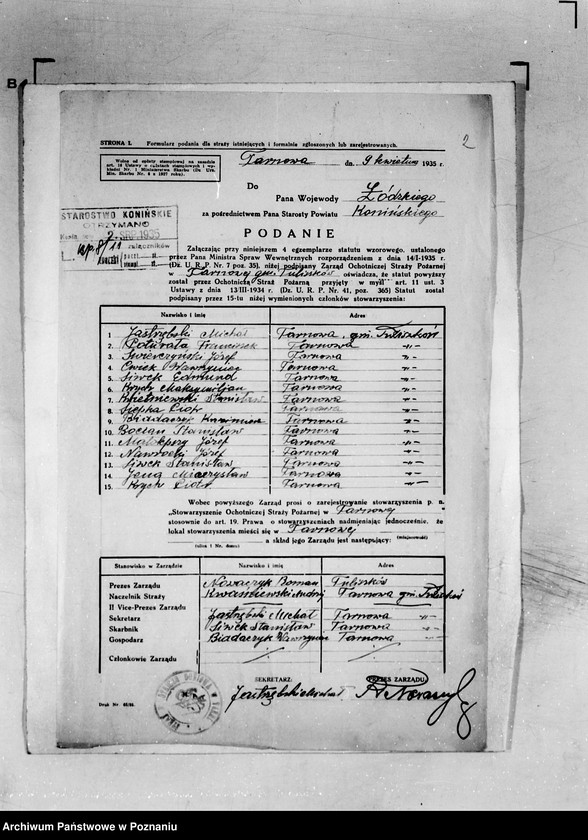 2
STRONA I. Formularz podania dla straży istniejących i formalnie zgłoszonych lub zarejestrowanych.
Wolne od opłaty stemplowej na zasadzie
Tarnowa dn. 9 kwietnia 1935 r.
Do
Pana Wojewody Łódzkiego
za pośrednictwem Pana Starosty Powiatu Konińskiego
STAROSTWO KONIŃSKIE
OTRZYMANO
załączników
PODANIE
Załączając przy niniejszem 4 egzemplarze statutu wzorowego, ustalonego
przez Pana Ministra Spraw Wewnętrznych rozporządzeniem z dnia 14/I-1935 r.
(Dz. U. R. P. Nr. 7 poz. 35), niżej podpisany Zarząd Ochotniczej Straży Pożarnej
w Tarnowy gm. Tuliszków oświadcza, że statut powyższy
został przez Ochotniczą Straż Pożarną przyjęty w myśl art. 11 ust. 3
Ustawy z dnia 13/III-1934 r. (Dz. U. R. P. Nr. 41, poz. 365) Statut został
podpisany przez 15-tu niżej wymienionych członków stowarzyszenia:
Nazwisko i imię Adres
1. Jastrzębski Michał Tarnowa, gm. Tuliszków
2. Franciszek Tarnowa
3. Świerczyński Józef Tarnowa
4. Ćwiek Wawrzyniec Tarnowa
5. Siwek Edmund Tarnowa
6. Maksymiljan Tarnowa
7. Kwiatkowski Stanisław Tarnowa
8. Piotr Tarnowa
9. Biadaczyk Kazimierz Tarnowa
10. Bocian Stanisław Tarnowa
11. Józef Tarnowa
12. Nawrocki Józef Tarnowa
13. Siwek Stanisław Tarnowa
14. Mieczysław Tarnowa
15. Piotr Tarnowa
Wobec powyższego Zarząd prosi o zarejestrowanie stowarzyszenia p. n.
„Stowarzyszenie Ochotniczej Straży Pożarnej w Tarnowy
stosownie do art. 19. Prawa o stowarzyszeniach nadmieniając jednocześnie, że
lokal stowarzyszenia mieści się w Tarnowej
(miejscowość)
a skład jego Zarządu jest następujący:
(ulica i Nr. domu)
Stanowisko w Zarządzie Nazwisko i imię Adres
Prezes Zarządu Nowaczyk Roman Tuliszków
Naczelnik Straży Kwaśniewski Andrzej Tarnowa gm. Tuliszków
II Vice-Prezes Zarządu
Sekretarz Jastrzębski Michał Tarnowa
Skarbnik Siwek Stanisław Tarnowa
Gospodarz Biadaczyk Wawrzyniec Tarnowa
Członkowie Zarządu
SEKRETARZ: PREZES ZARZĄDU:
Jastrzębski Michał
Archiwum Państwowe w Poznaniu